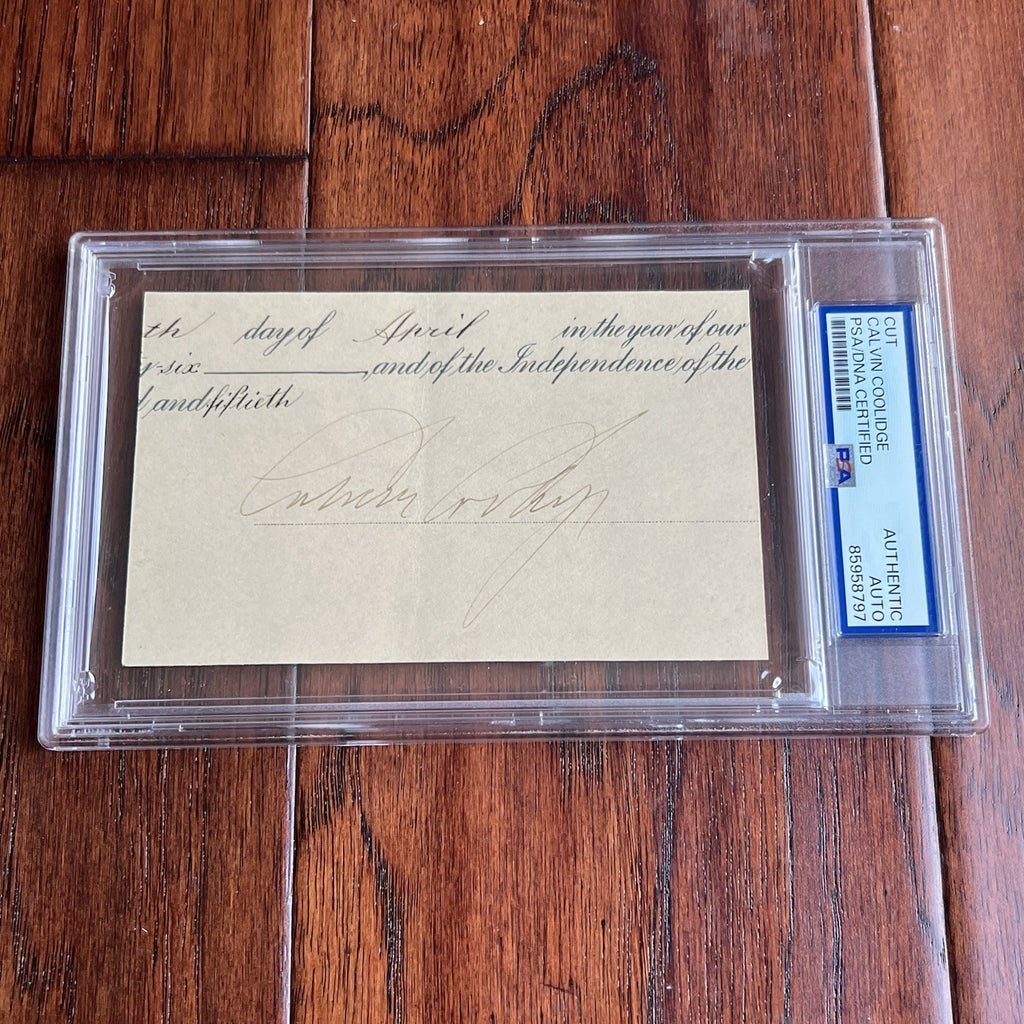 th day of April in the year of our
y-six, and of the Independence of the
d and fiftieth
Calvin Coolidge
CUT
CALVIN COOLIDGE
PSA/DNA CERTIFIED
PSA
AUTHENTIC
AUTO
85958797